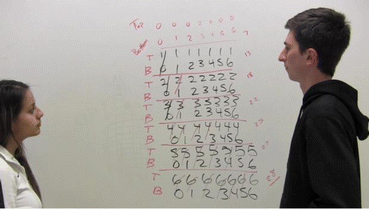 Top 0 0 0 0 0 0 0
Bottom 0 1 2 3 4 5 6 7
T 1 1 1 1 1 1 1
B 0 1 2 3 4 5 6 13
T 2 2 2 2 2 2 2
B 0 1 2 3 4 5 6 18
T 3 3 3 3 3 3 3
B 0 1 2 3 4 5 6 22
T 4 4 4 4 4 4 4
B 0 1 2 3 4 5 6 25
T 5 5 5 5 5 5 5
B 0 1 2 3 4 5 6 27
T 6 6 6 6 6 6 6
B 0 1 2 3 4 5 6 28